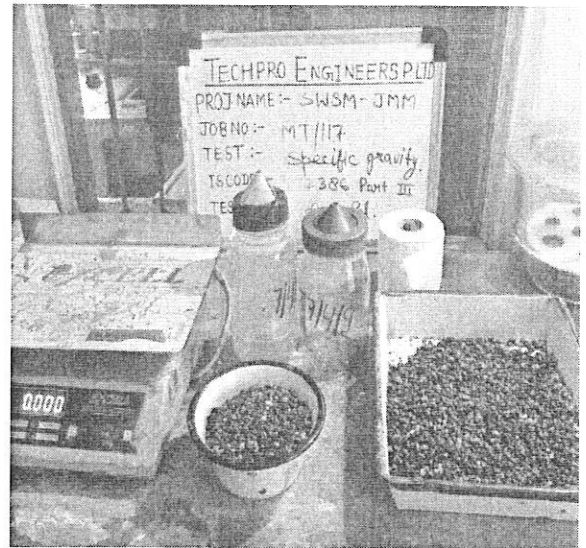 TECHPRO ENGINEERS P LTD
PROJ NAME:- SWSM-JMM
JOB NO:- MT/117
TEST:- Specific gravity.
ISCODE 386 Part III
TES
0.000